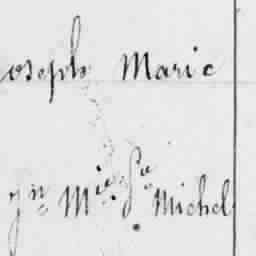 oseph Marie
yn Mie Je Michel